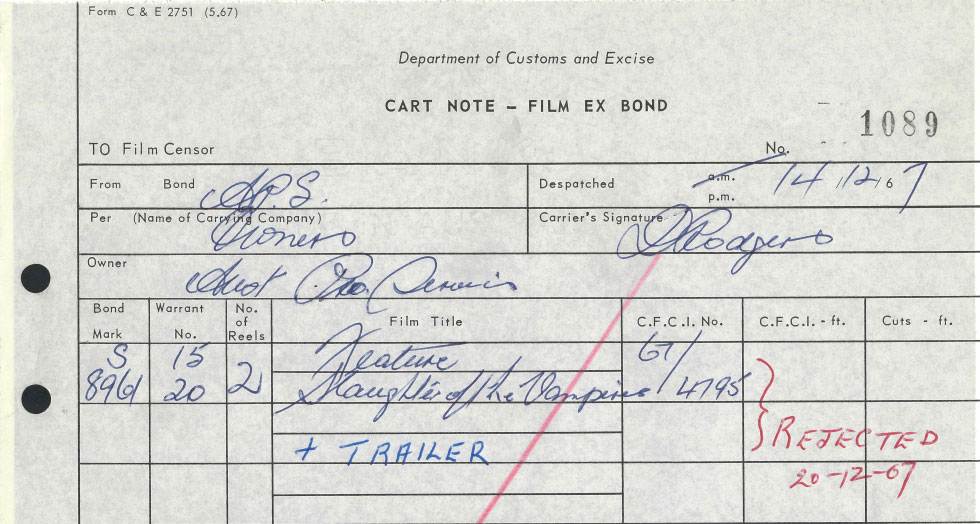 Form C & E 2751 (5.67)
Department of Customs and Excise
CART NOTE – FILM EX BOND
1089
TO Film Censor No.
From Bond A.P.S. Despatched a.m. p.m. 14/12/67
Per (Name of Carrying Company) Carrier's Signature
Rodgers
Owner
Bond Mark Warrant No. No. of Reels Film Title C.F.C.I. No. C.F.C.I. - ft. Cuts - ft.
S 15 Feature 67/
896 20 2 Slaughter of the Vampires 4795
+ TRAILER
REJECTED
20-12-67